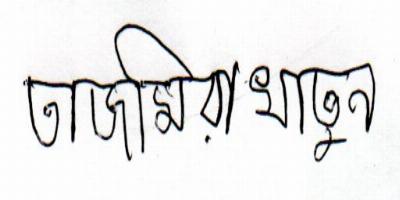 তাজমিরা খাতুন